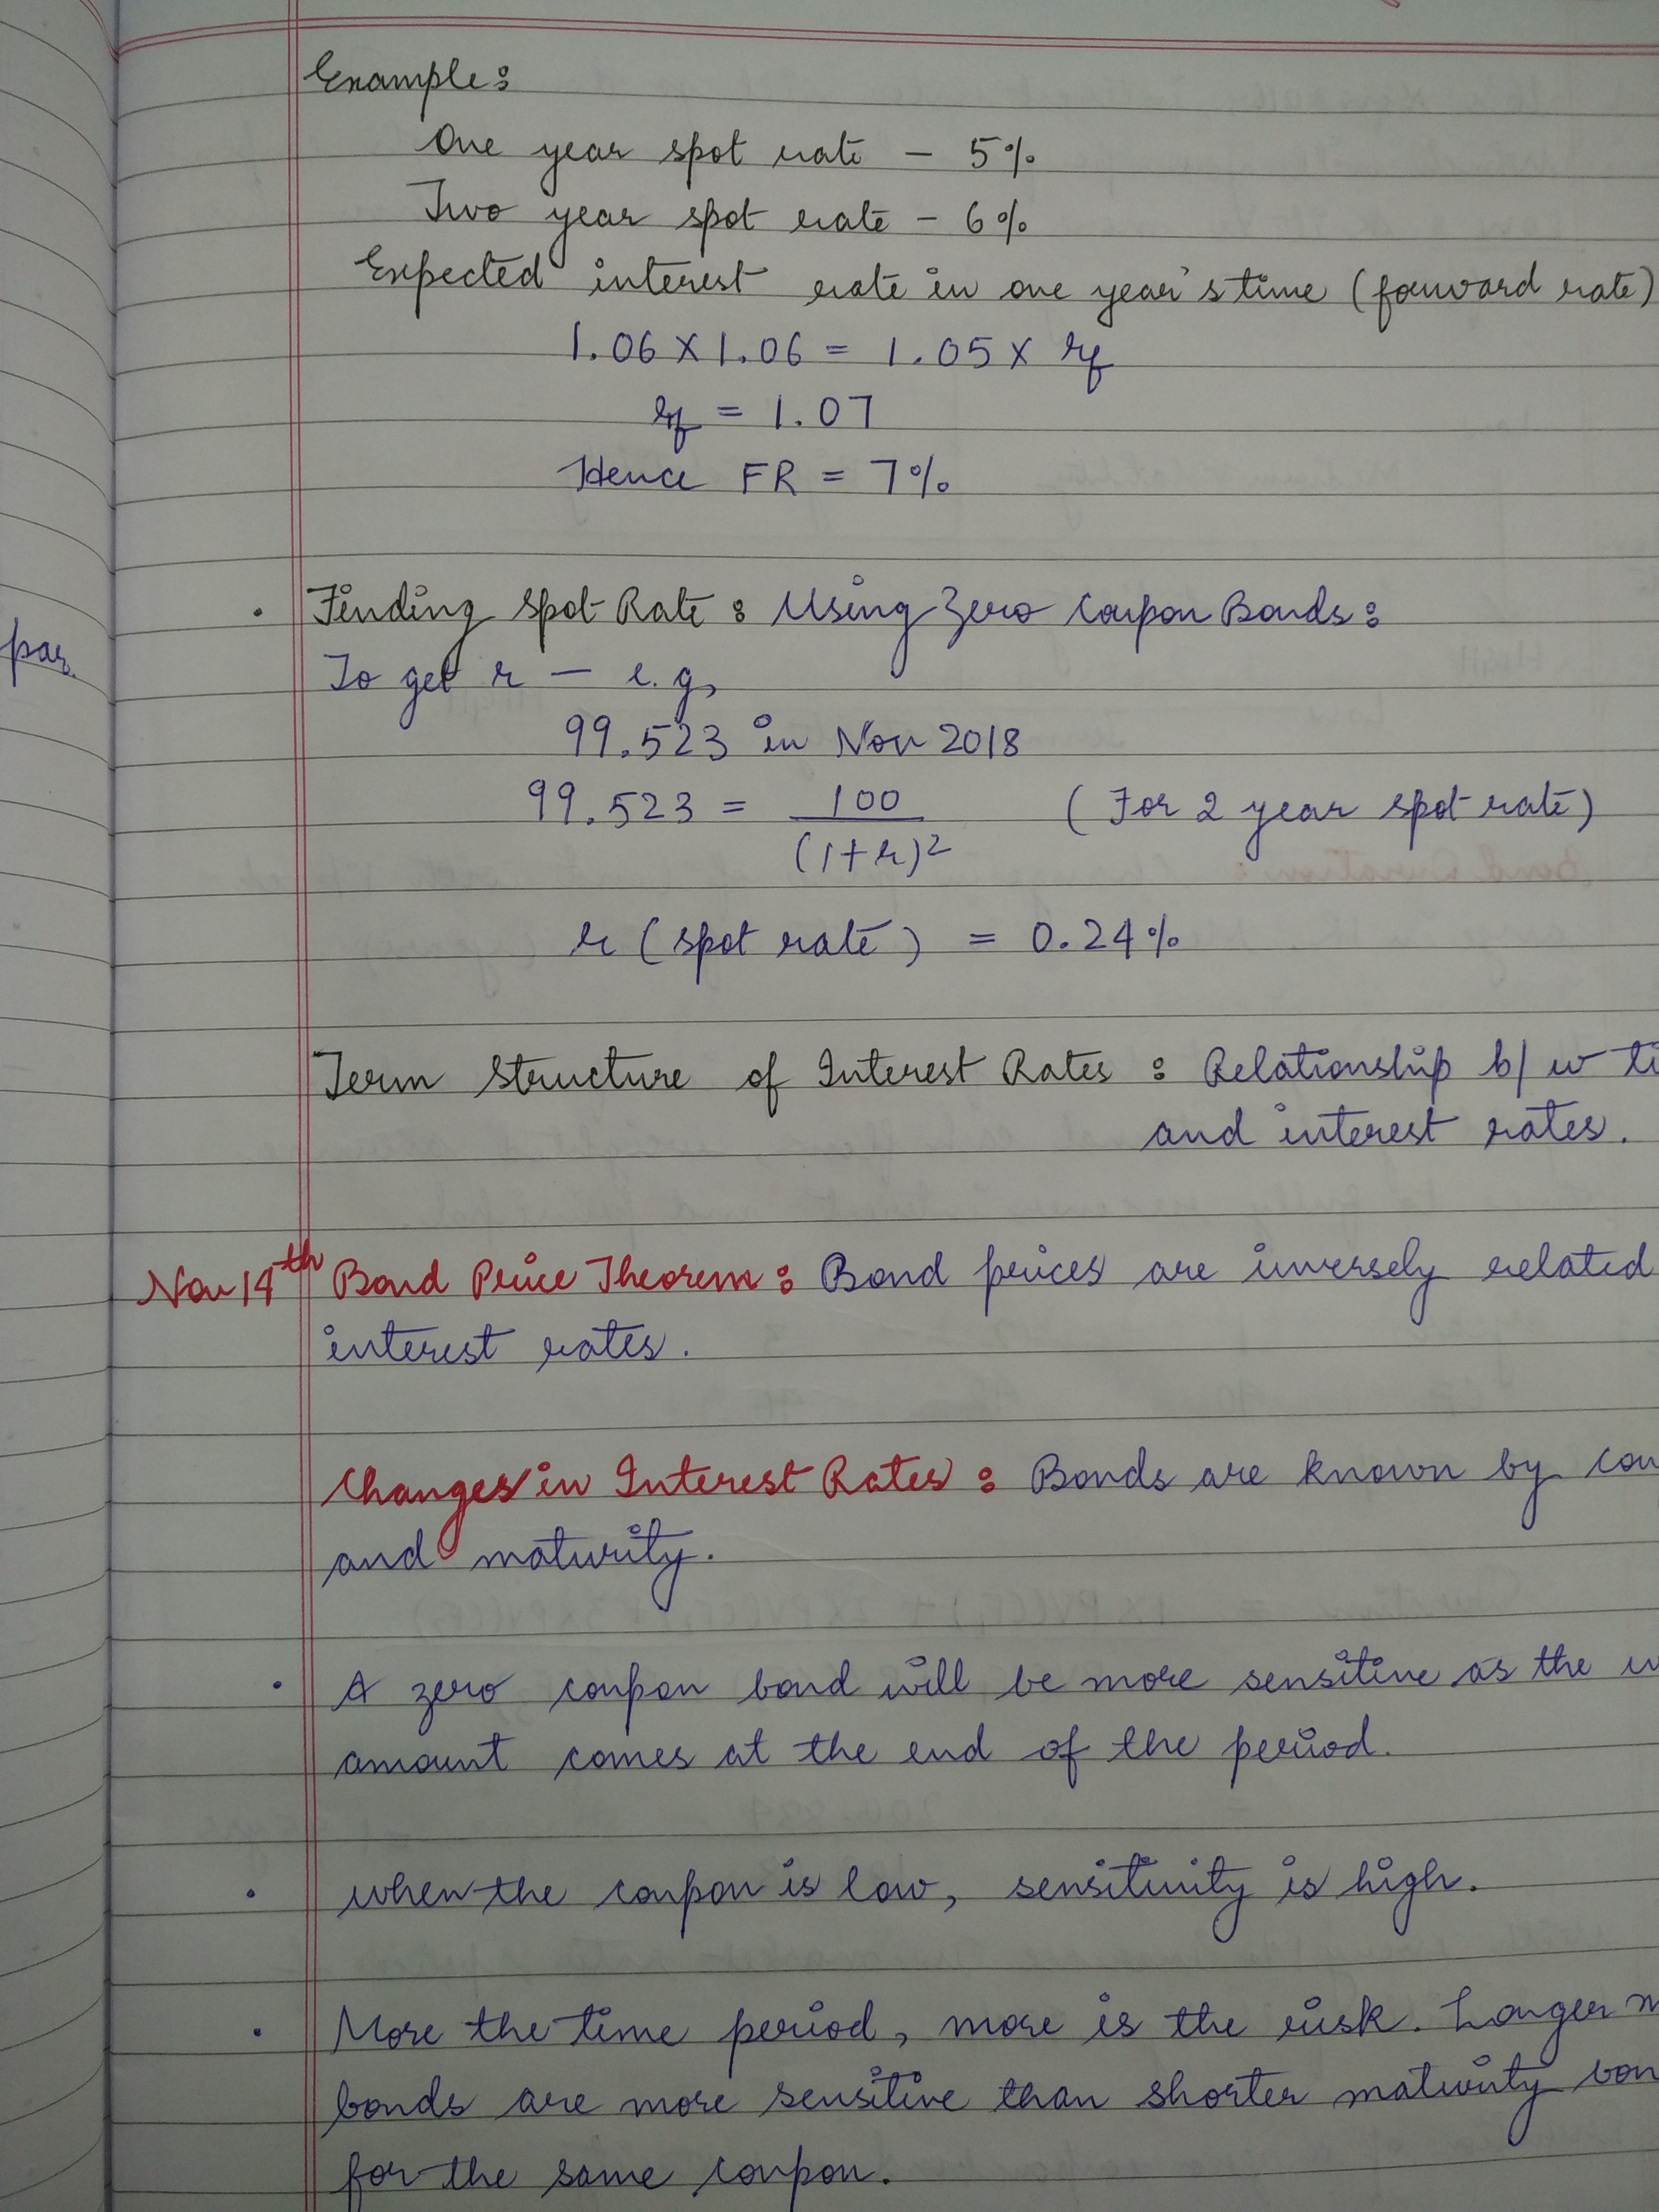 Example:
One year spot rate - 5%
Two year spot rate - 6%
Expected interest rate in one year's time (forward rate)
1.06 X 1.06 = 1.05 X rf
rf = 1.07
Hence FR = 7%
• Finding Spot Rate : Using Zero Coupon Bonds :
par
To get r — e.g,
99.523 in Nov 2018
99.523 = 100 / (1+r)² (For 2 year spot rate)
r (spot rate) = 0.24%
Term Structure of Interest Rates : Relationship b/w ti
and interest rates.
Nov 14th Bond Price Theorem : Bond prices are inversely related
interest rates.
Changes in Interest Rates : Bonds are known by cou
and maturity.
• A zero coupon bond will be more sensitive as the
amount comes at the end of the period.
• when the coupon is low, sensitivity is high.
• More the time period, more is the risk. Longer m
bonds are more sensitive than shorter maturity bon
for the same coupon.